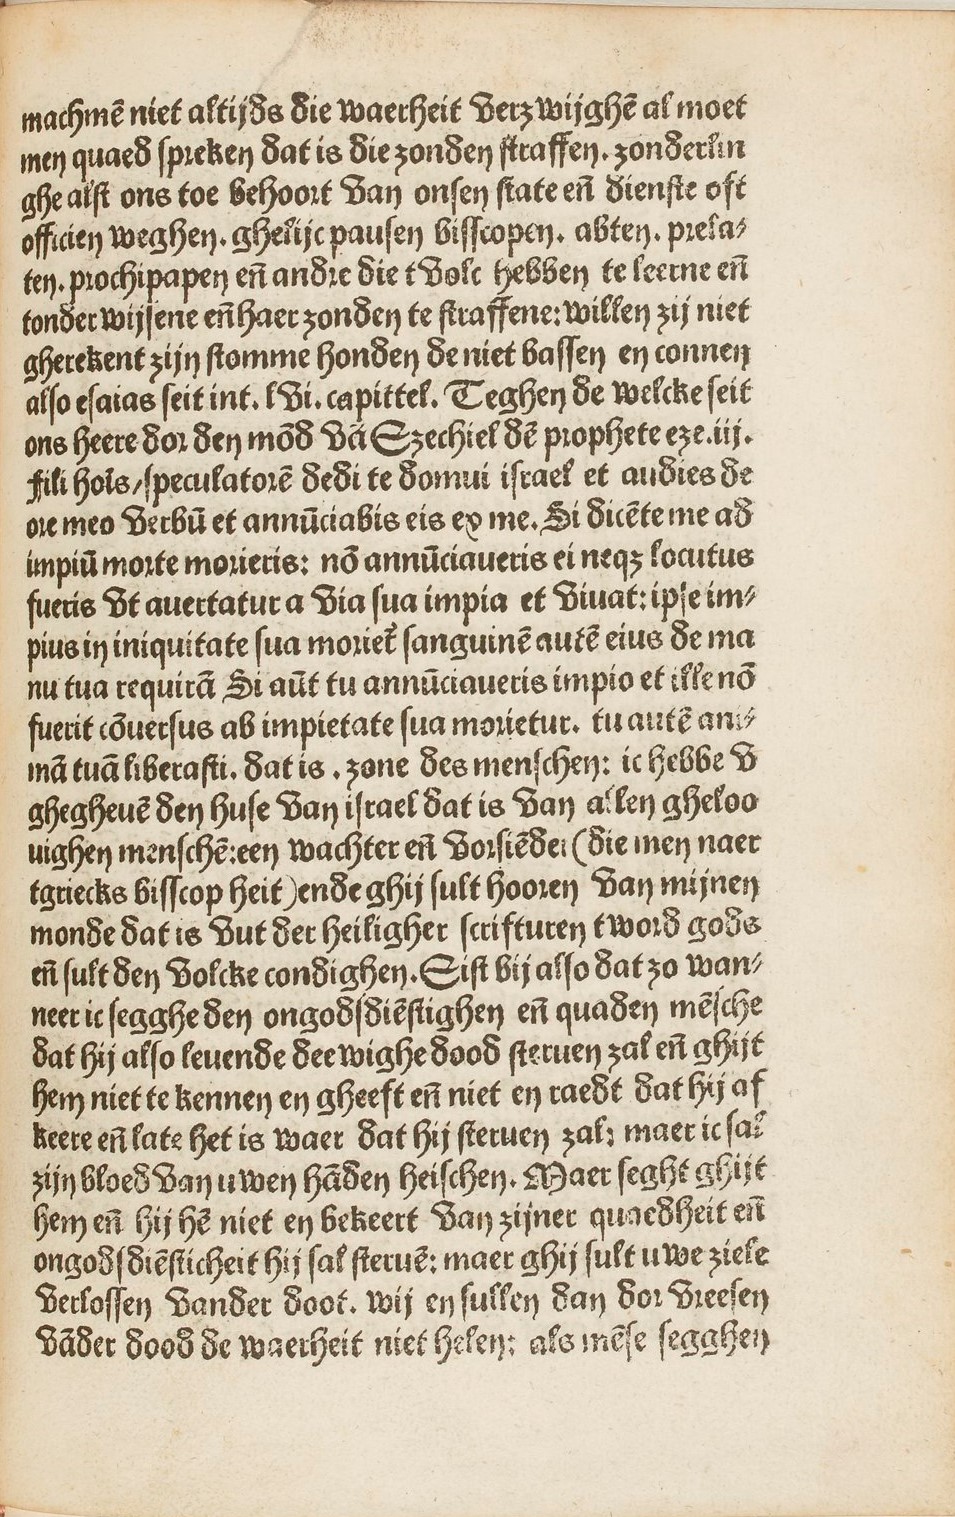 machmē niet altijds die waerheit verzwijghē al moet
men quaed spreken dat is die zonden straffen. zonderlin
ghe alst ons toe behoort van onsen state en̄ dienste oft
officien weghen. ghelijc pausen bisscopen. abten. prela-
ten. prochipapen en̄ andre die tvolc hebben te leerne en̄
tonderwijsene en̄ haer zonden te straffene: willen zij niet
gherekent zijn stomme honden de niet bassen en connen
also esaias seit int. lvi. capittel. Teghen de welcke seit
ons heere dor den mōd vā Ezechiel dē prophete eze. iij.
fili hoīs/speculatorē dedi te domui israel et audies de
ore meo verbū et annūciabis eis ex me. Si dicēte me ad
impiū morte morieris: nō annūciaueris ei neqz locutus
fueris vt auertatur a via sua impia et viuat: ipse im-
pius in iniquitate sua moriet᷑ sanguinē autē eius de ma
nu tua requirā Si aūt tu annūciaueris impio et ille nō
fuerit cōuersus ab impietate sua morietur. tu autē ani-
mā tuā liberasti. dat is. zone des menschen: ic hebbe v
ghegheuē den huse van israel dat is van allen gheloo
uighen menschē: een wachter en̄ vorsiēder (die men naer
tgriecks bisscop heit) ende ghij sult hooren van mijnen
monde dat is vut der heiligher scrifturen tword gods
en̄ sult den volcke condighen. Eist bij also dat zo wan-
neer ic segghe den ongodsdiēstighen en̄ quaden mēsche
dat hij also leuende dee wighe dood steruen zal en̄ ghijt
hem niet te kennen en gheeft en̄ niet en raedt dat hij af
keere en̄ late het is waer dat hij steruen zal: maer ic sal
zijn bloed van uwen hāden heischen. Maer seght ghijt
hem en̄ hij hē niet en bekeert van zijner quaedheit en̄
ongodsdiēsticheit hij sal steruē: maer ghij sult uwe ziele
verlossen vander doot. wij en sullen dan dor vreesen
vāder dood de waerheit niet helen: als mēse segghen